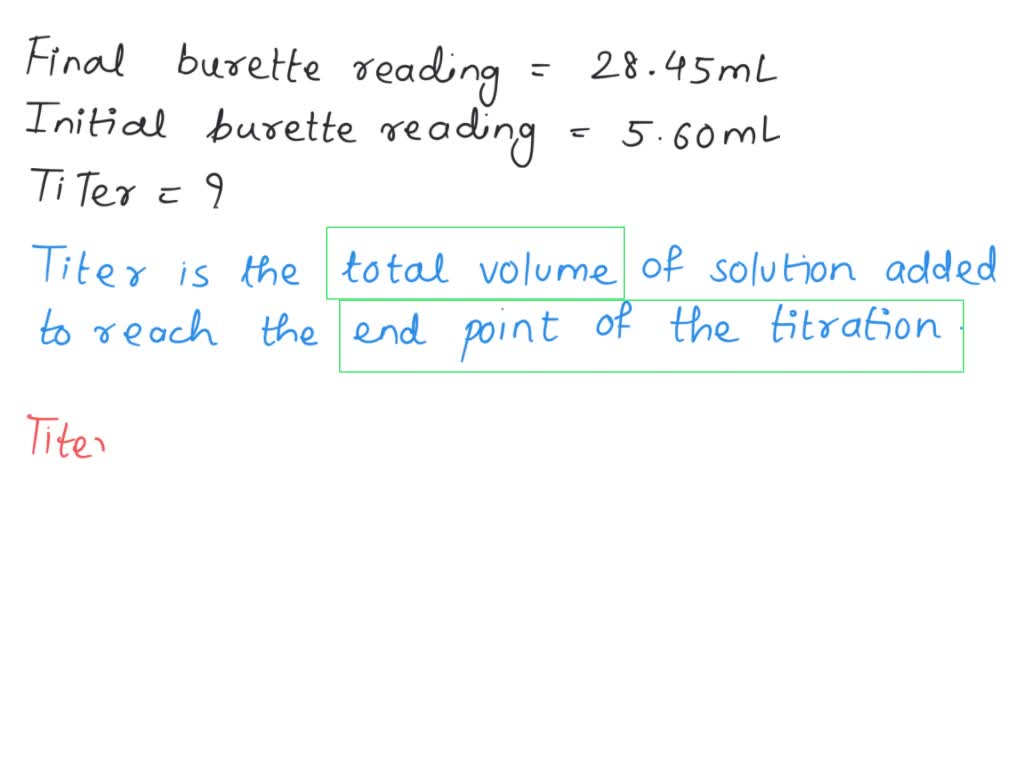 Final burette reading = 28.45mL
Initial burette reading = 5.60mL
TiTer = ?
Titer is the total volume of solution added
to reach the end point of the titration.
Titer